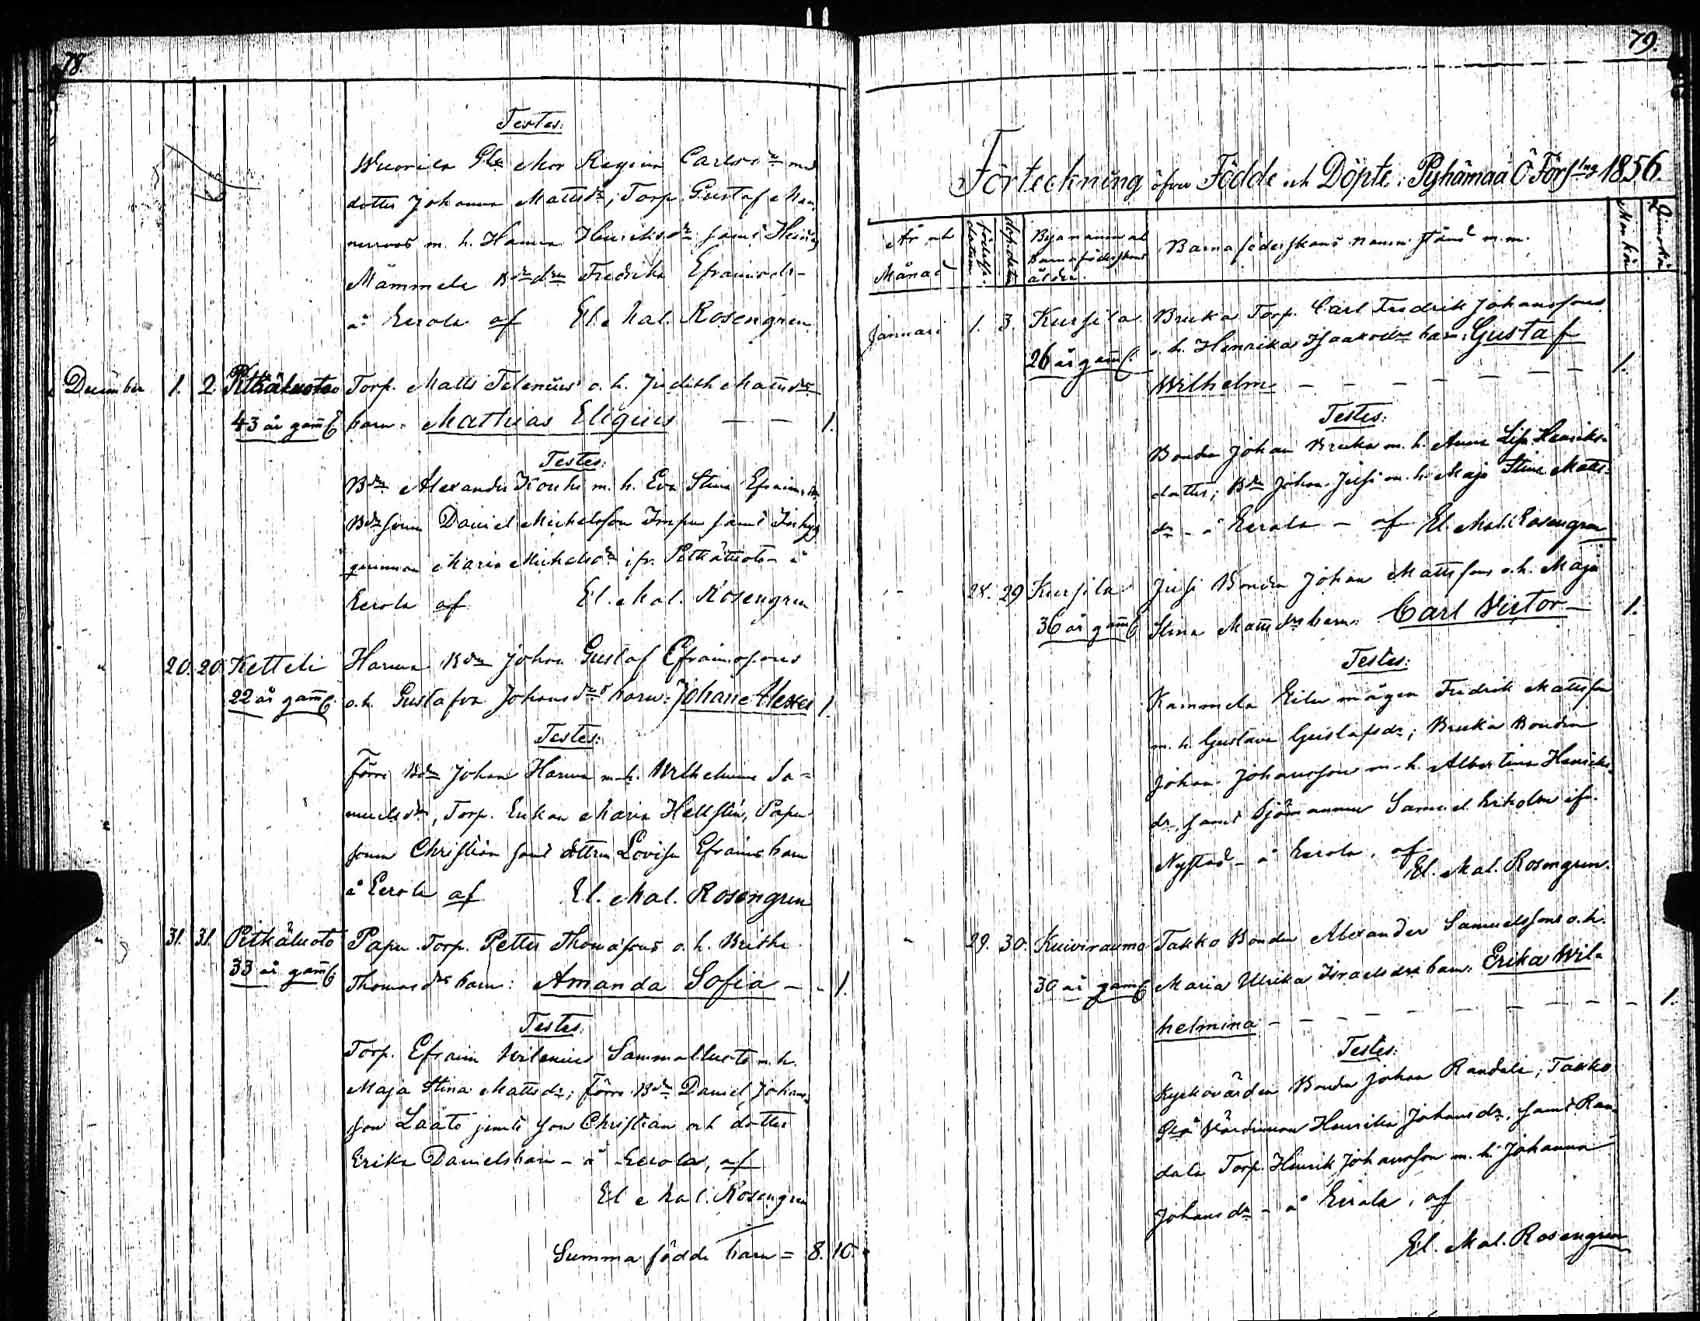 78.
Testes:
Wuorila Gla Mor Regina Carlsdr med
dotter Johanna Mattsdr; Torp. Gustaf
m. h. Hanna Henriksdr samt
Mämmelä Fredrika Efraimsdr
å Eerola af El. Mal. Rosengren
December 1. 2. Pitkäluoto Torp. Matts Telenius o. h. Judith
43 år gaml barn: Mathias Eligius — — 1.
Testes:
Bdn Alexander m. h. Eva Stina Efraimsdr
Bdesonen Daniel Michelsson samt
Maria Michelsdr ifr. Pitkäluoto å
Eerola af El. Mal. Rosengren
" 20. 20. Ketteli Bdn Johan Gustaf Efraimssons
22 år gaml o. h. Gustafva Johansdrs barn: Johan Alexei 1.
Testes:
Förre Bdn Johan m. h. Wilhelmina Sa=
muelsdr, Torp. Enkan Maria Hellsten, Papu
sonen Christian samt dottren Lovisa Efraims barn
å Eerola af El. Mal. Rosengren
" 31. 31. Pitkäluoto Papu Torp. Petter Thomassons o. h. Britha
33 år gaml Thomasdrs barn: Amanda Sofia - - 1.
Testes:
Torp. Efraim Wilenius Sammalluoto m. h.
Maja Stina Mattsdr; förre Bdn Daniel Johans-
son Laato jemte son Christian och dotter
Erika Danielsbarn - å Eerola, af
El. Mal. Rosengren
Summa födde barn = 8. 10.
79.
Förteckning öfver Födde och Döpte i Pyhämaa Ö Förslng 1856.
År och Månad födelse datum dopdatum Byanamn och barnaföderskans ålder Barnaföderskans namn stånd m.m. Man kön Qvinnkön
Januari 1. 3. Kursila Bruka Torp. Carl Fredrik Johanssons
26 år gaml o. h. Henrika Isaaksdrs barn: Gustaf
Wilhelm — — — — — — 1.
Testes:
Bonden Johan Bruka m. h. Anna Lisa Henriks-
dotter; Bdn Johan Jussi m. h. Maja Stina Matts-
dr - å Eerola - af El. Mal. Rosengren
28. 29 Kursila Jussi Bonden Johan Mattssons o. h. Maja
36 år gaml Stina Mattsdrs barn: Carl Victor — 1.
Testes:
Kammela Fredrik Mattsson
m. h. Gustava Gustafsdr; Bruka Bonden
Johan Johansson m. h. Albertina Henriks-
dr, samt Sjömannen Samuel ifr.
Nystad - å Eerola, af
El. Mal. Rosengren.
" 29. 30. Kuivirauma Takko Bonden Alexander Samuelssons o. h.
30 år gaml Maria Ulrika Israelsdrs barn: Erika Wil-
helmina - — — — — — — - 1.
Testes:
Kyrkovärden Bonden Johan Randala; Takko
Gla Wärdinnan Henrika Johansdr, samt Ran-
dala Torp. Henrik Johansson m. h. Johanna
Johansdr - å Eerola, af
El. Mal. Rosengren